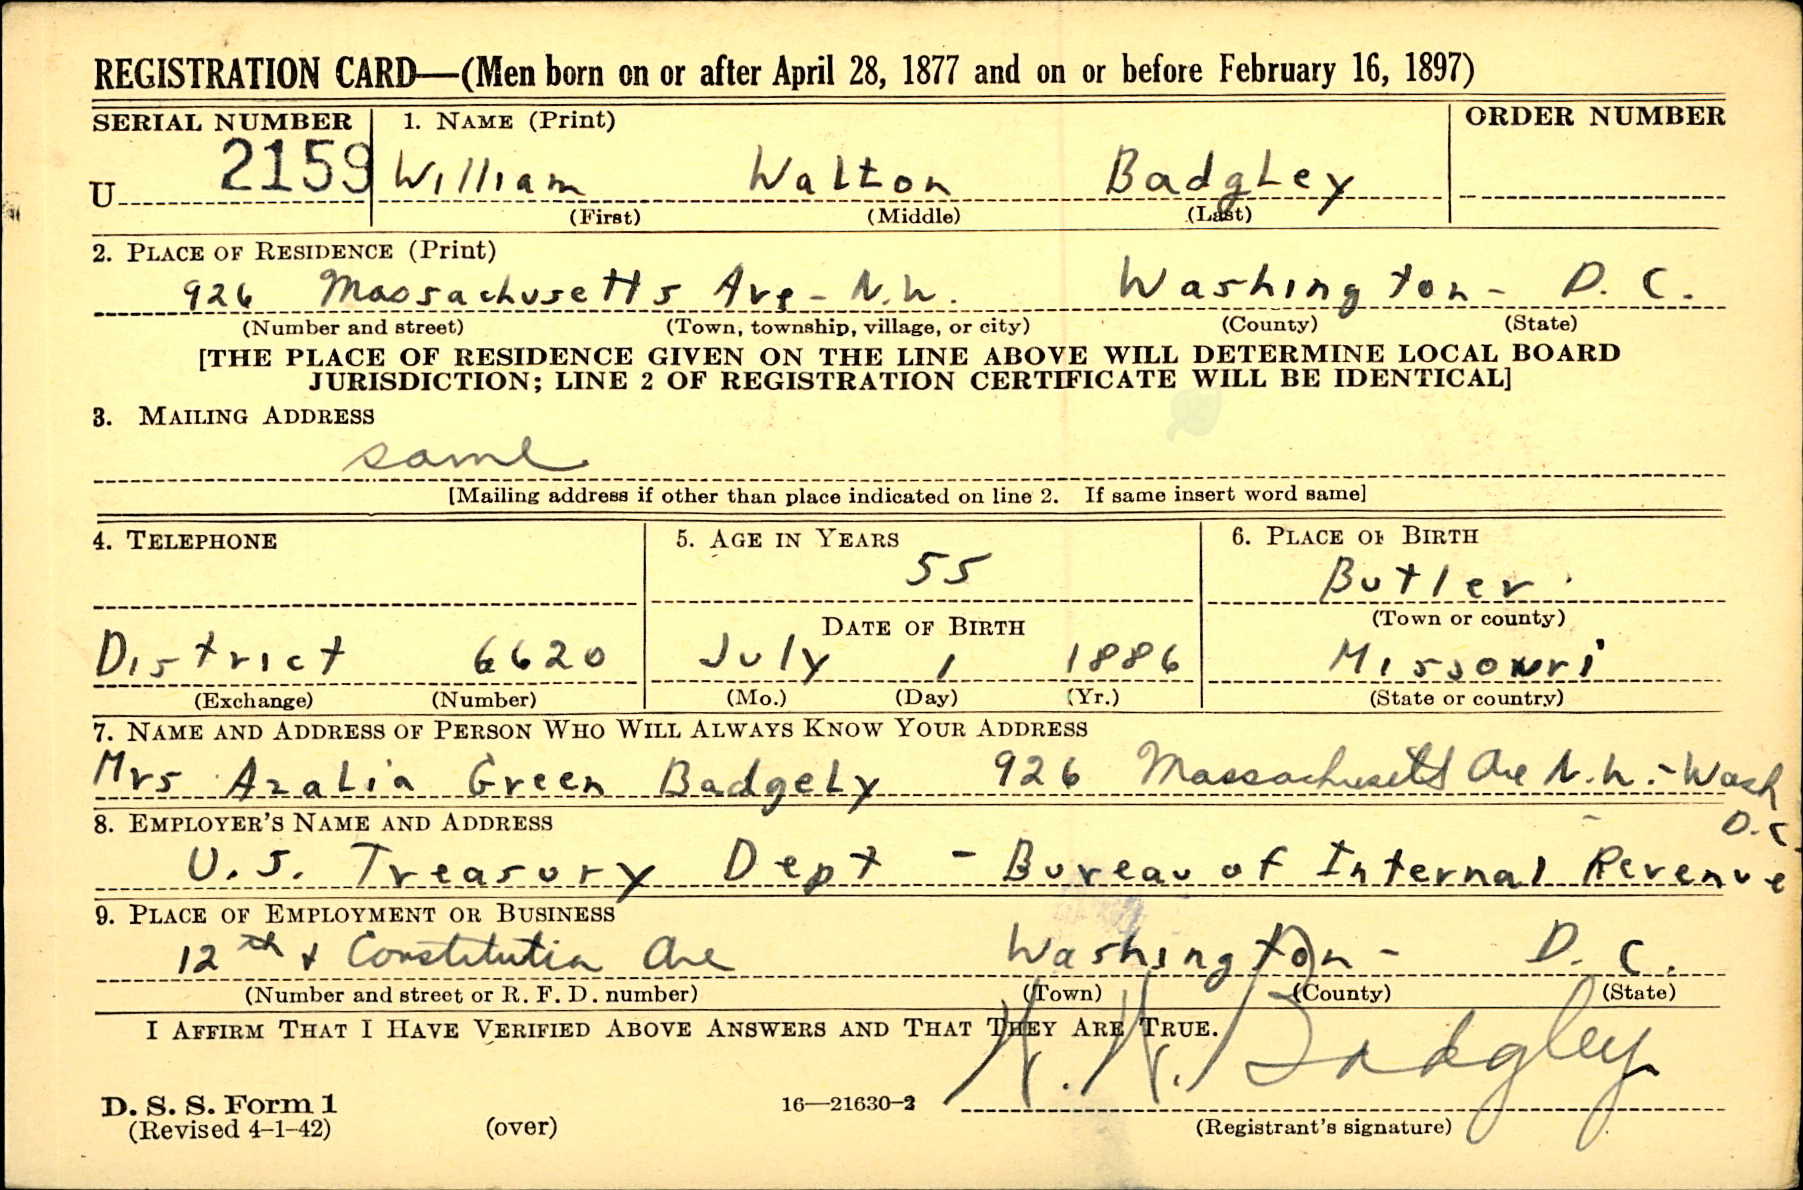 REGISTRATION CARD—(Men born on or after April 28, 1877 and on or before February 16, 1897)
SERIAL NUMBER 1. NAME (Print) ORDER NUMBER
U 2159 William Walton Badgley
(First) (Middle) (Last)
2. PLACE OF RESIDENCE (Print)
926 Massachusetts Ave - N.W. Washington - D. C.
(Number and street) (Town, township, village, or city) (County) (State)
[THE PLACE OF RESIDENCE GIVEN ON THE LINE ABOVE WILL DETERMINE LOCAL BOARD
JURISDICTION; LINE 2 OF REGISTRATION CERTIFICATE WILL BE IDENTICAL]
3. MAILING ADDRESS
same
[Mailing address if other than place indicated on line 2. If same insert word same]
4. TELEPHONE 5. AGE IN YEARS 6. PLACE OF BIRTH
55 Butler
DATE OF BIRTH (Town or county)
District 6620 July 1 1886 Missouri
(Exchange) (Number) (Mo.) (Day) (Yr.) (State or country)
7. NAME AND ADDRESS OF PERSON WHO WILL ALWAYS KNOW YOUR ADDRESS
Mrs Azalia Green Badgely 926 Massachusetts Ave N.W. - Wash
D.C.
8. EMPLOYER'S NAME AND ADDRESS
U.S. Treasury Dept - Bureau of Internal Revenue
9. PLACE OF EMPLOYMENT OR BUSINESS
12th & Constitution Ave Washington - D. C.
(Number and street or R. F. D. number) (Town) (County) (State)
I AFFIRM THAT I HAVE VERIFIED ABOVE ANSWERS AND THAT THEY ARE TRUE.
W. W. Badgley
D. S. S. Form 1
(Revised 4-1-42) (over) 16—21630-2 (Registrant's signature)